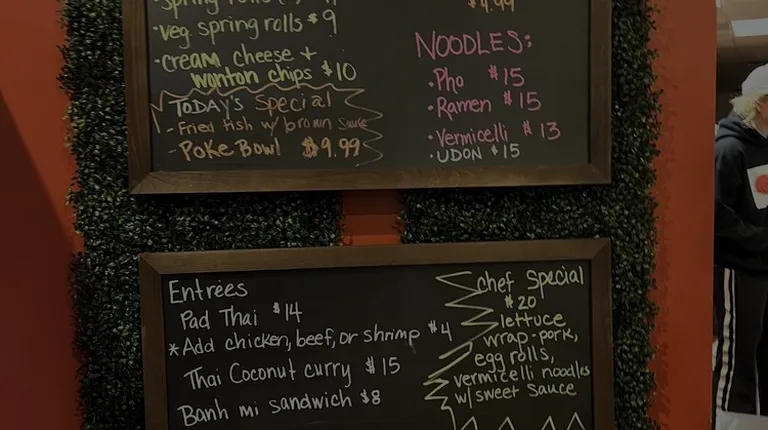 spring rolls
·Veg. spring rolls $9
·cream cheese +
wonton chips $10
TODAY'S Special
- Fried fish w/ brown sauce
- Poke Bowl $9.99
$4.99
NOODLES:
·Pho $15
·Ramen $15
·Vermicelli $13
·UDON $15
Entrées
Pad Thai $14
*Add chicken, beef, or shrimp $4
Thai Coconut curry $15
Banh mi sandwich $8
Chef Special
$20
lettuce
wrap-pork,
egg rolls,
vermicelli noodles
w/ sweet sauce